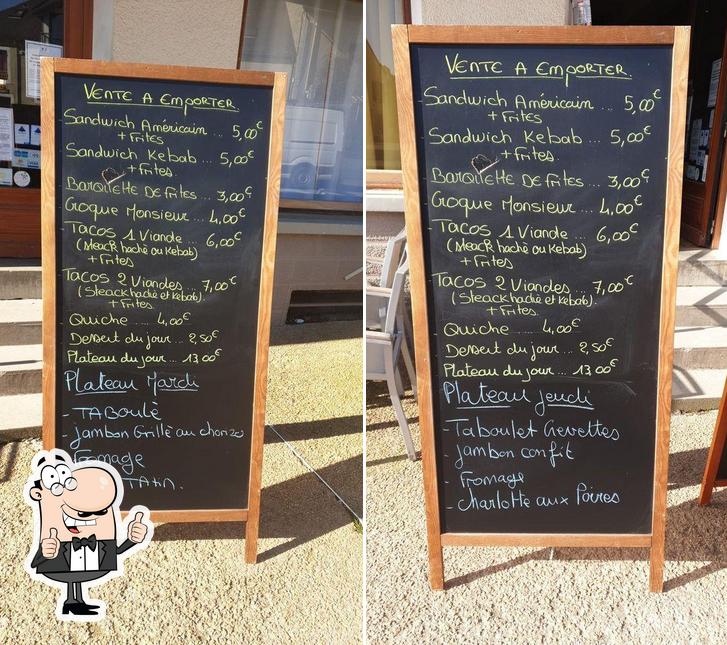 VENTE A EMPORTER
Sandwich Américain ... 5,00€
+ Frites
Sandwich Kebab ... 5,00€
+ Frites.
BarQUETTE DE Frites ... 3,00€
Croque Monsieur ... 4,00€
TACOS 1 Viande ... 6,00€
(steack haché ou Kebab)
+ Frites
TACOS 2 Viandes ... 7,00€
(Steack haché et Kebab).
+ Frites.
Quiche ..... 4,00€
Dessert du jour ... 2,50€
Plateau du jour ... 13 00€
Plateau Mardi
- TABOULÉ
- jambon Grillé au chorizo
Fromage
TATIN.
VENTE A EMPORTER.
Sandwich Américain ... 5,00€
+ Frites
Sandwich Kebab ... 5,00€
+ Frites.
BarQUETTE DE Frites ... 3,00€
Croque Monsieur ... 4,00€
TACOS 1 Viande ... 6,00€
(steack haché ou Kebab)
+ Frites
TACOS 2 Viandes ... 7,00€
(Steack haché et Kebab).
+ Frites.
Quiche ..... 4,00€
Dessert du jour ... 2,50€
Plateau du jour ... 13 00€
Plateau jeudi
- Taboulet Crevettes
- jambon confit
- Fromage
- charlotte aux Poires